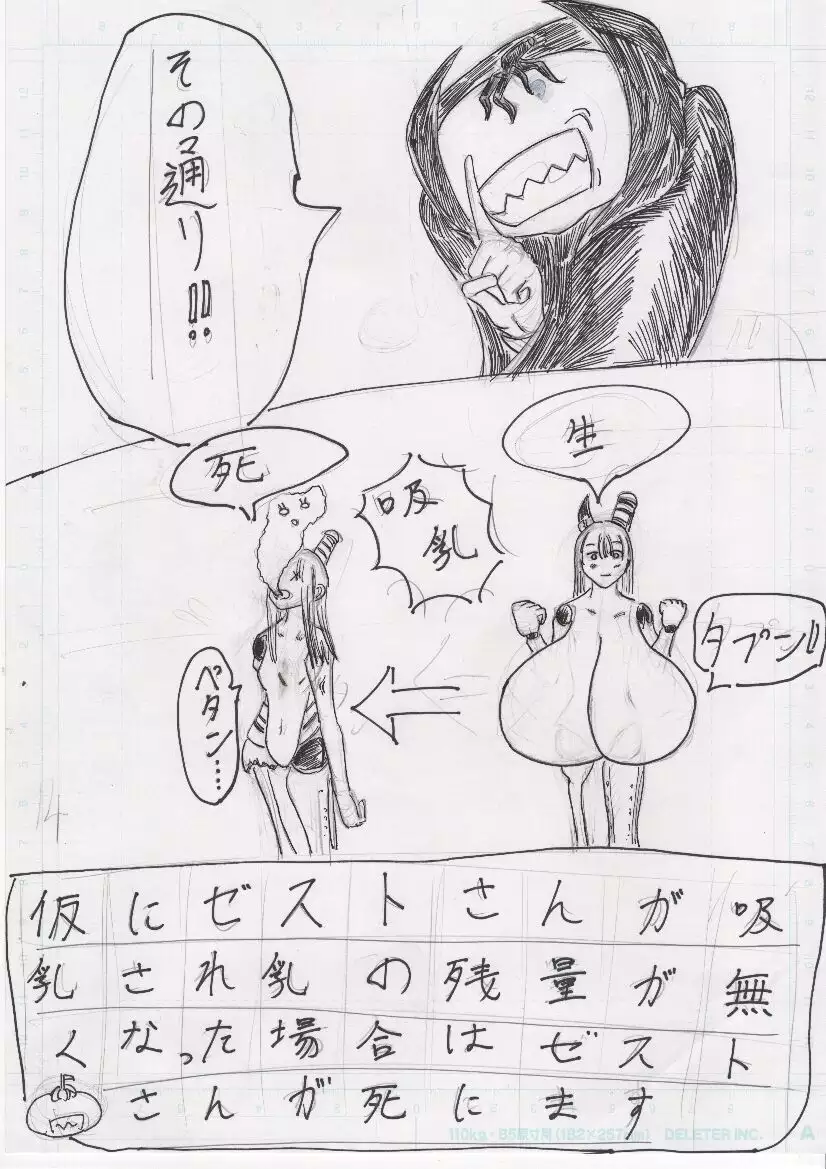 その通り!!
生
タプーン!!
吸乳
死
ペタン……
仮にゼストさんが吸
乳され乳の残量が無
くなった場合はゼスト
さんが死にます
110kg・B5原寸用(182×257mm) DELETER INC. A